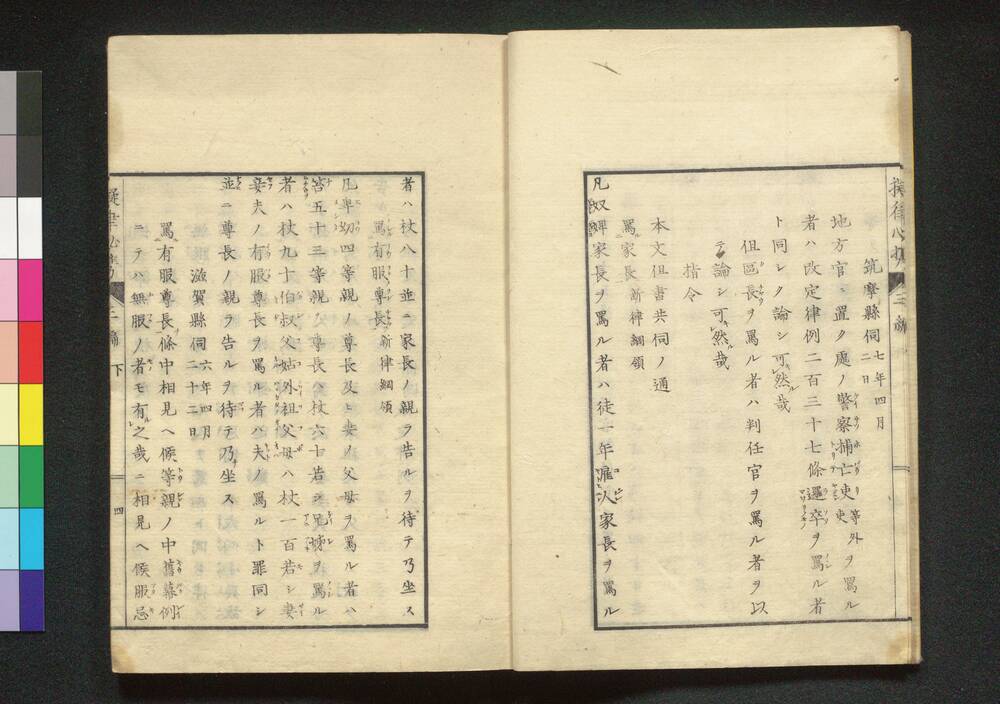 筑摩縣伺 七年四月二日
地方官ニ置ク處ノ警察捕亡吏等外ヲ罵ル
者ハ改定律例二百三十七條邏卒ヲ罵ル者
ト同シク論シ可然哉
但區長ヲ罵ル者ハ判任官ヲ罵ル者ヲ以
テ論シ可然哉
指令
本文但書共伺ノ通
罵家長 新律綱領
凡奴婢家長ヲ罵ル者ハ徒一年雇人家長ヲ罵ル
者ハ杖八十並ニ家長ノ親ラ告ルヲ待テ乃坐ス
罵有服尊長 新律綱領
凡卑幼四等親ノ尊長及ヒ妻ノ父母ヲ罵ル者ハ
笞五十三等親ノ尊長ハ杖六十若シ兄姊ヲ罵ル
者ハ杖九十伯叔父姑外祖父母ハ杖一百若シ妻
妾夫ノ有服尊長ヲ罵ル者ハ夫ノ罵ルト罪同シ
並ニ尊長ノ親ラ告ルヲ待テ乃坐ス
滋賀縣伺 六年四月二十二日
罵有服尊長條中相見ヘ候等親ノ中舊幕例
ニテハ無服ノ者モ有之哉ニ相見ヘ候服忌
下
四